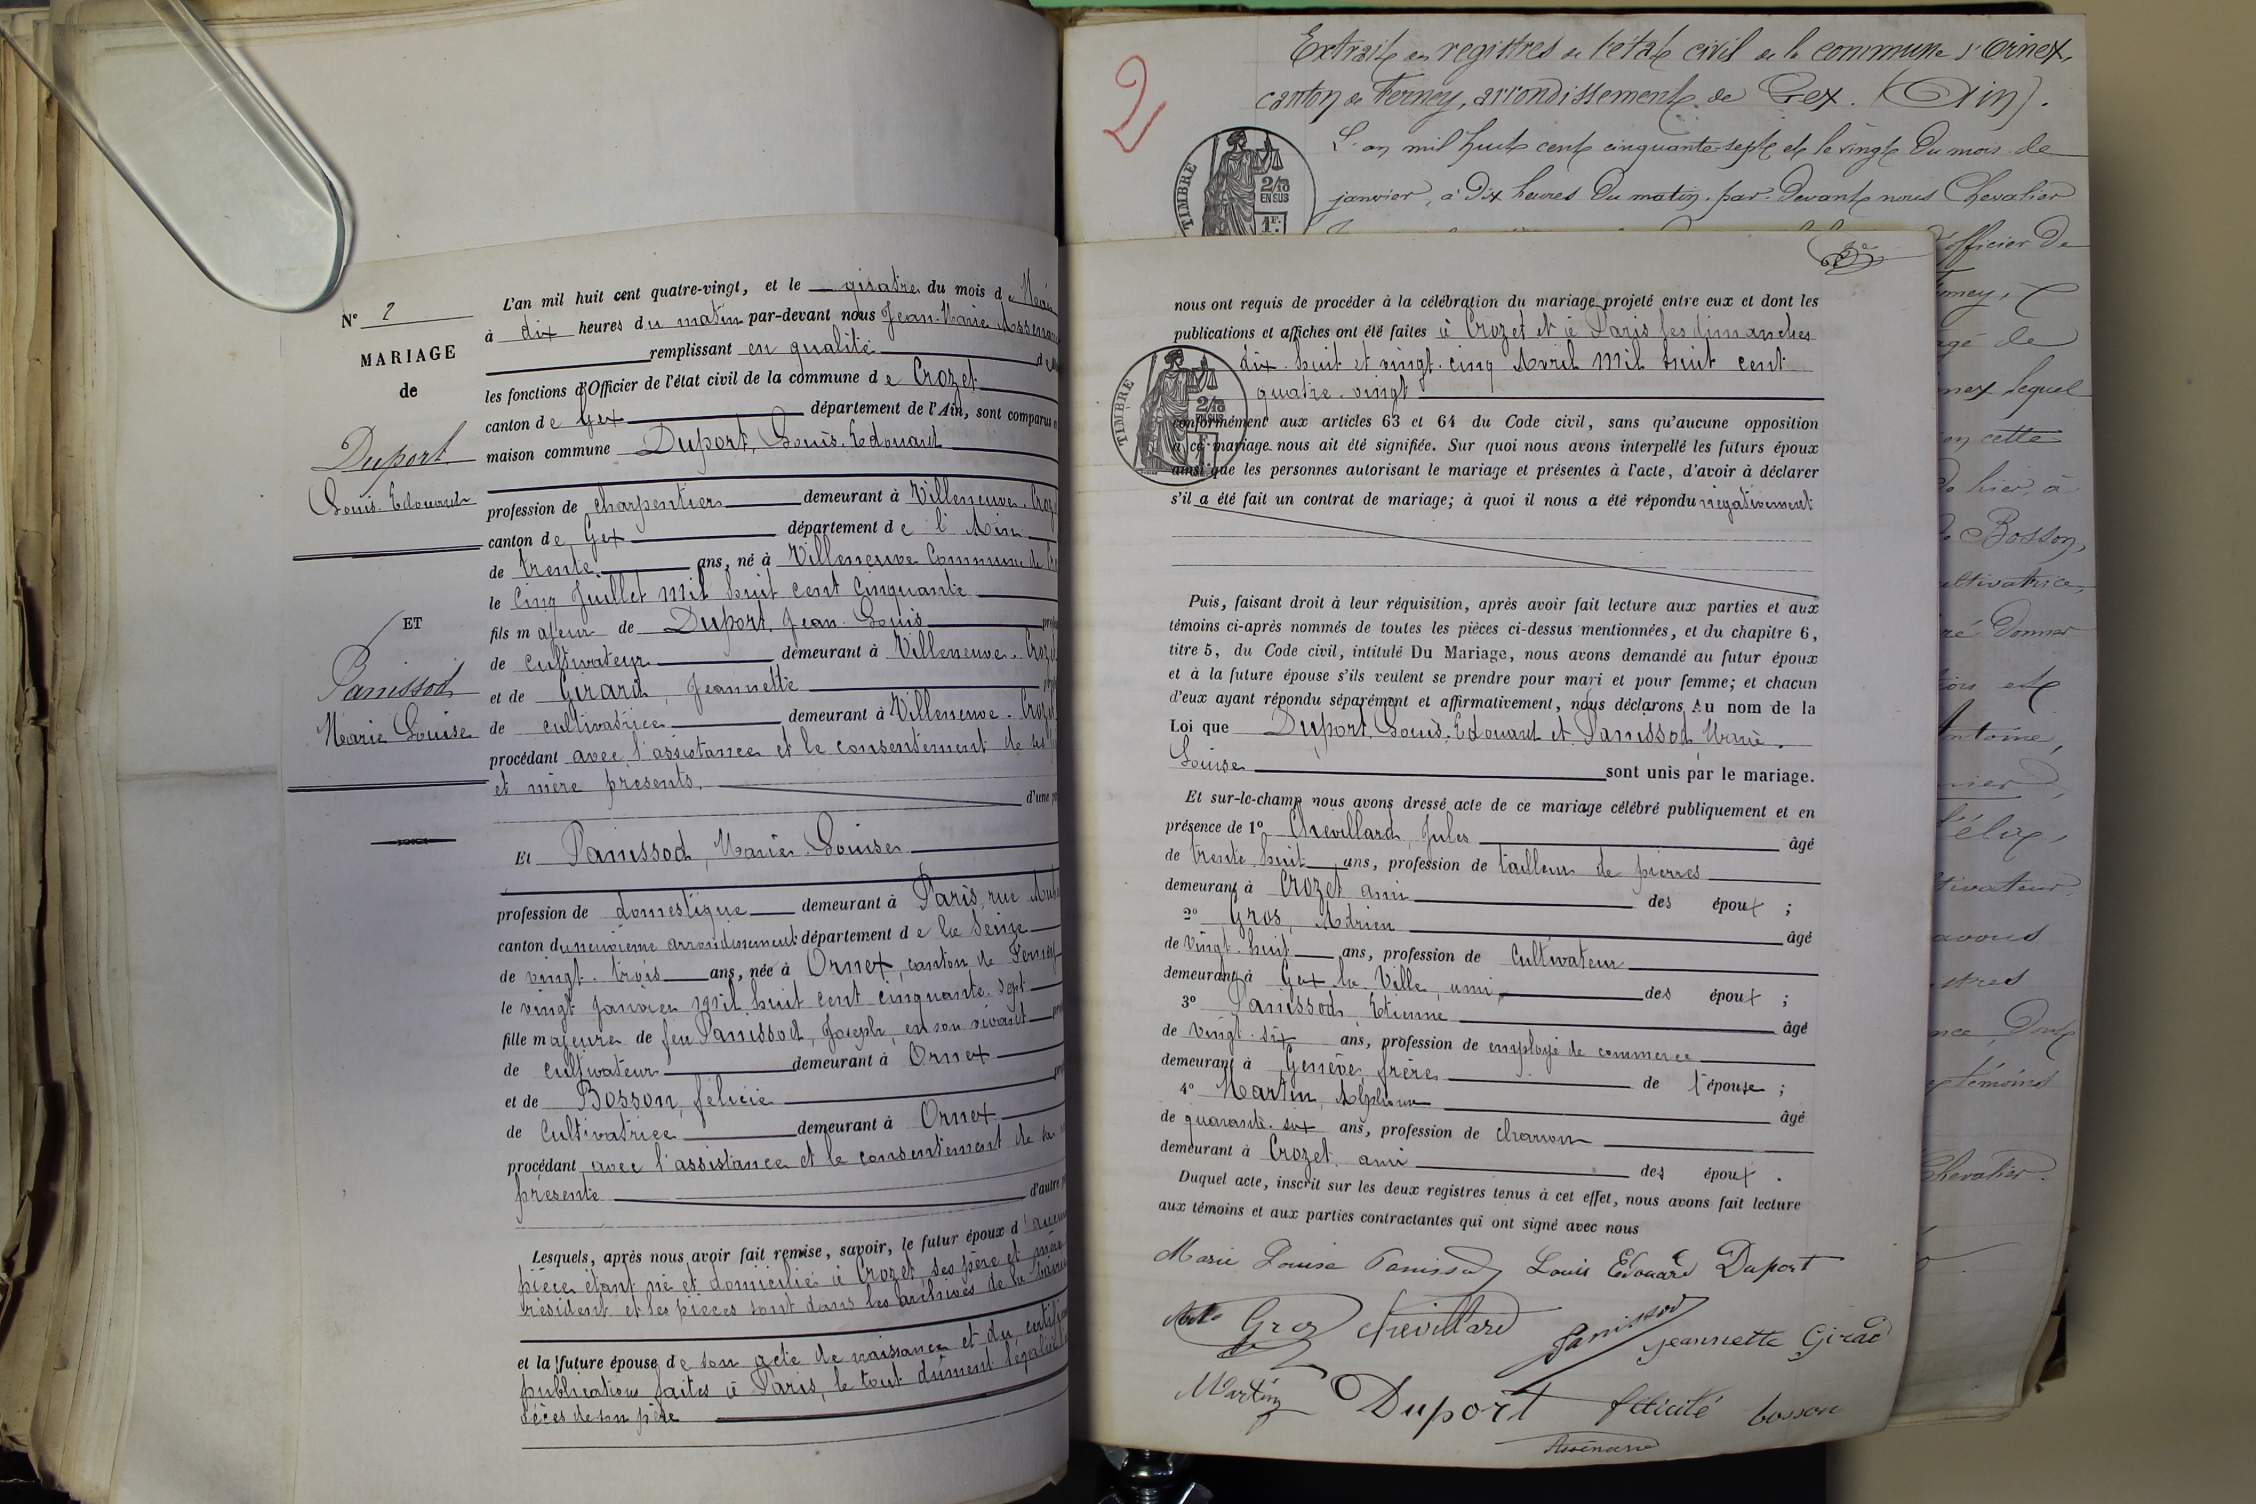 N° 2
MARIAGE
de
Duport
Louis Edouard
ET
Panissod
Marie Louise
L'an mil huit cent quatre-vingt, et le du mois de
à dix heures du matin par-devant nous Jean-Marie
remplissant en qualité
les fonctions d'Officier de l'état civil de la commune de Crozet
canton de Gex département de l'Ain, sont comparus
maison commune Duport, Louis Edouard
profession de charpentier demeurant à Villeneuve
canton de Gex département de l'Ain
de trente ans, né à Villeneuve Commune de
le Cinq Juillet mil huit cent Cinquante
fils majeur de Duport, Jean Louis
de cultivateur demeurant à Villeneuve
et de Girard, Jeannette
de cultivatrice demeurant à Villeneuve
procédant avec l'assistance et le consentement de ses
et mère présents. d'une
Et Panissod, Marie Louise
profession de domestique demeurant à Paris, rue
canton du neuvième arrondissement département de la Seine
de vingt-trois ans, née à Ornex, canton de Ferney
le vingt Janvier mil huit cent cinquante-sept
fille majeure de feu Panissod, Joseph, en son vivant
de cultivateur demeurant à Ornex
et de Bosson, félicie
de Cultivatrice demeurant à Ornex
procédant avec l'assistance et le consentement de sa
présente d'autre
Lesquels, après nous avoir fait remise, savoir, le futur époux d'
pièce étant né et domicilié à Crozet, ses père et mère
résident et les pièces sont dans les archives de la
et la future épouse de son acte de naissance et du
publications faites à Paris, le tout dûment légalisé
décès de son père
nous ont requis de procéder à la célébration du mariage projeté entre eux et dont les
publications et affiches ont été faites à Crozet et à Paris les dimanches
dix-huit et vingt-cinq Avril mil huit cent
quatre-vingt
TIMBRE
2/10
EN SUS
conformément aux articles 63 et 64 du Code civil, sans qu'aucune opposition
à ce mariage nous ait été signifiée. Sur quoi nous avons interpellé les futurs époux
ainsi que les personnes autorisant le mariage et présentes à l'acte, d'avoir à déclarer
s'il a été fait un contrat de mariage; à quoi il nous a été répondu négativement
Puis, faisant droit à leur réquisition, après avoir fait lecture aux parties et aux
témoins ci-après nommés de toutes les pièces ci-dessus mentionnées, et du chapitre 6,
titre 5, du Code civil, intitulé Du Mariage, nous avons demandé au futur époux
et à la future épouse s'ils veulent se prendre pour mari et pour femme; et chacun
d'eux ayant répondu séparément et affirmativement, nous déclarons Au nom de la
Loi que Duport, Louis Edouard et Panissod, Marie
Louise sont unis par le mariage.
Et sur-le-champ nous avons dressé acte de ce mariage célébré publiquement et en
présence de 1° Chevillard, Jules âgé
de trente huit ans, profession de tailleur de pierres
demeurant à Crozet ami des époux ;
2° Gros, Adrien âgé
de vingt-huit ans, profession de Cultivateur
demeurant à Gex la Ville, ami des époux ;
3° Panissod, Etienne âgé
de vingt-six ans, profession de employé de commerce
demeurant à Genève, frère de l'épouse ;
4° Martin, Alphonse âgé
de quarante-six ans, profession de charron
demeurant à Crozet, ami des époux .
Duquel acte, inscrit sur les deux registres tenus à cet effet, nous avons fait lecture
aux témoins et aux parties contractantes qui ont signé avec nous
Marie Louise Panissod Louis Edouard Duport
Gros Chevillard Panissod Jeannette Girad
Martin Duport félicité bosson
2
Extrait des registres de l'état civil de la commune d'Ornex,
canton de Ferney, arrondissement de Gex. (Ain).
L'an mil huit cent cinquante-sept et le vingt du mois de
janvier, à dix heures du matin, par-devant nous Chevalier
TIMBRE
2/10
EN SUS
1F.
officier de
âgé de
lequel
cette
hier, à
Bosson,
cultivatrice,
donner
et
Antoine,
cultivateur
avons
témoins
Chevalier.